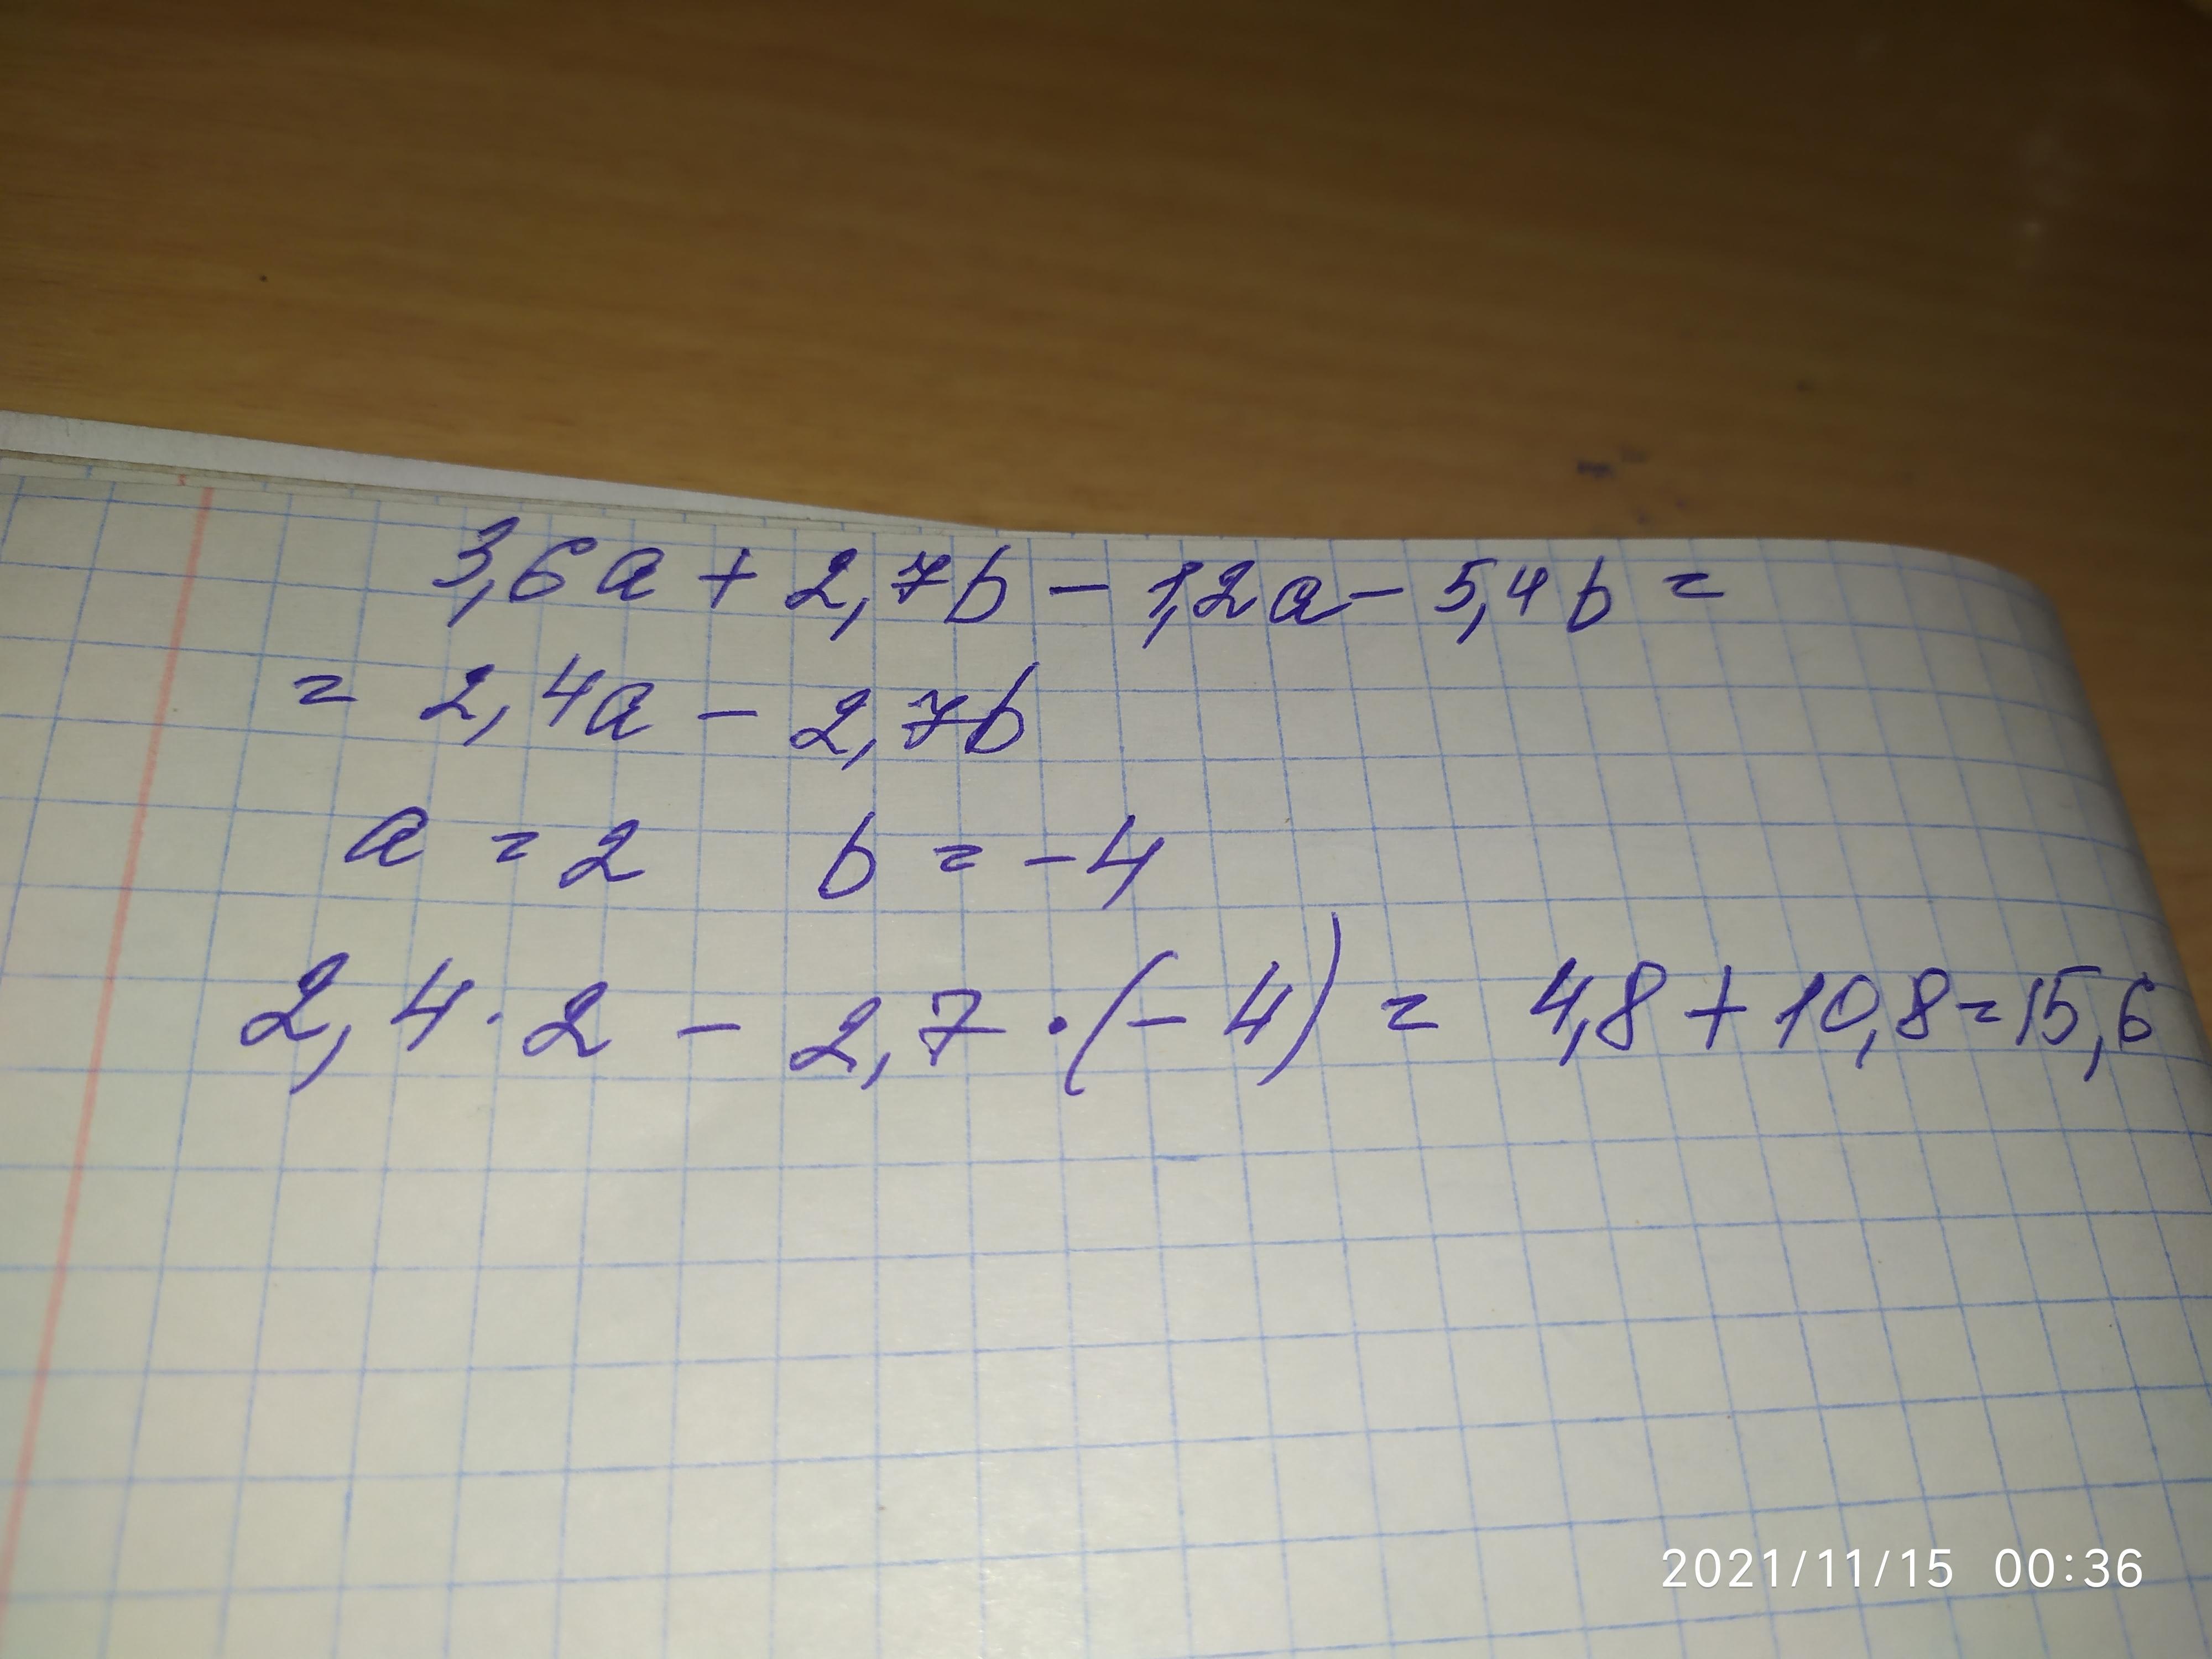 3,6a + 2,7b - 1,2a - 5,4b =
= 2,4a - 2,7b
a = 2 b = -4
2,4 · 2 - 2,7 · (-4) = 4,8 + 10,8 = 15,6
2021/11/15 00:36